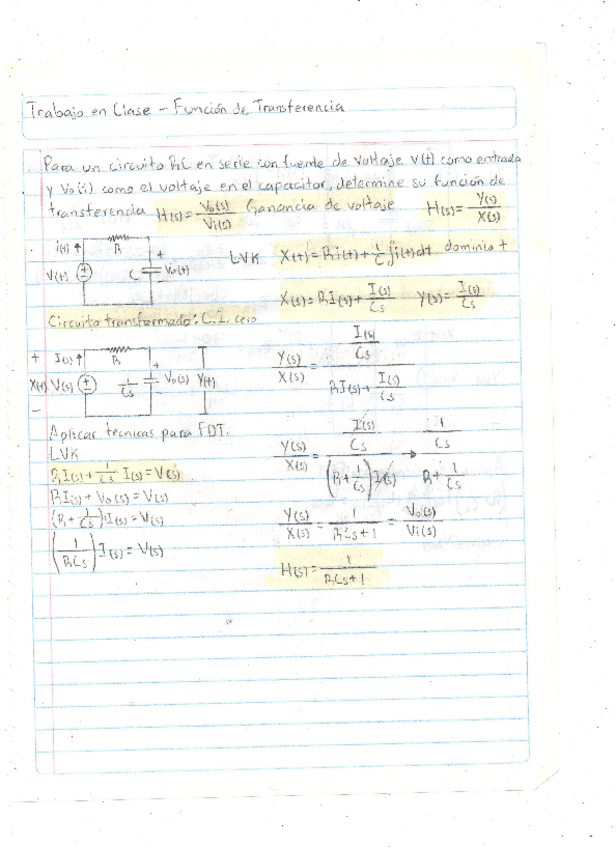 Trabajo en Clase - Función de Transferencia
Para un circuito RC en serie con fuente de voltaje v(t) como entrada
y Vo(i) como el voltaje en el capacitor, determine su función de
transferencia H(s)=Vo(s)/Vi(s) Ganancia de voltaje H(s)=Y(s)/X(s)
i(t) ↑ R + V(t) C Vo(t) -
LVK X(t)=Ri(t)+1/C ∫i(t)dt dominio t
X(s)=RI(s)+I(s)/Cs Y(s)=I(s)/Cs
Circuito transformado: C.I. cero
+ I(s) ↑ R + X(t) V(s) 1/Cs Vo(s) Y(t) - -
Y(s)/X(s) = (I(s)/Cs)/(RI(s)+I(s)/Cs)
Aplicar técnicas para FDT.
LVK
RI(s)+1/Cs I(s)=V(s)
RI(s)+Vo(s)=V(s)
(R+1/Cs)·I(s)=V(s)
(1/RCs)I(s)=V(s)
Y(s)/X(s) = (I(s)/Cs)/((R+1/Cs)I(s)) → (1/Cs)/(R+1/Cs)
Y(s)/X(s) = 1/(RCs+1) = Vo(s)/Vi(s)
H(s)=1/(RCs+1)